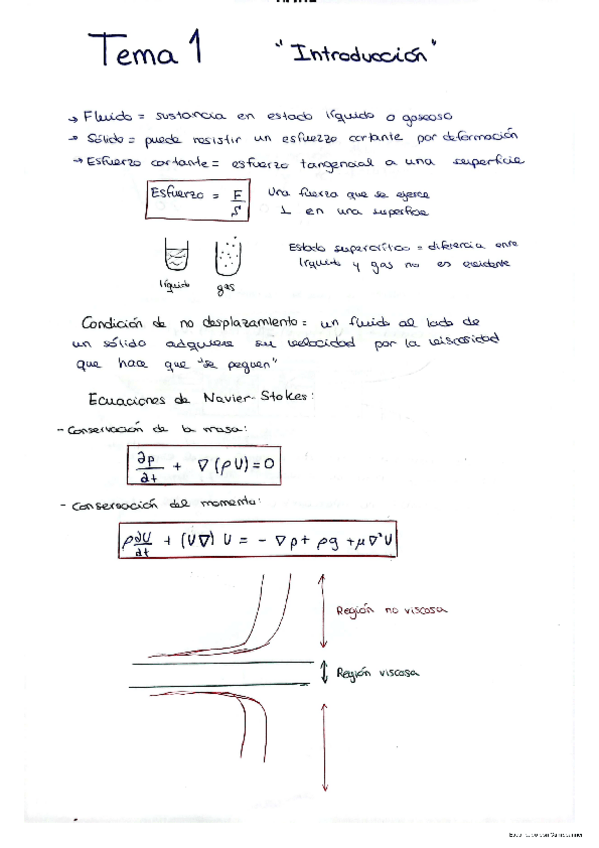 Tema 1 "Introducción"
→ Fluido = sustancia en estado líquido o gaseoso
→ Sólido = puede resistir un esfuerzo cortante por deformación
→ Esfuerzo cortante = esfuerzo tangencial a una superficie
Esfuerzo = F/S Una fuerza que se ejerce
⊥ en una superficie
Estado supercrítico = diferencia entre
líquido y gas no es existente
líquido gas
Condición de no desplazamiento = un fluido al lado de
un sólido adquiere su velocidad por la viscosidad
que hace que "se peguen"
Ecuaciones de Navier-Stokes:
- Conservación de la masa:
∂ρ/∂t + ∇(ρU) = 0
- Conservación del momento:
ρ∂U/∂t + (U∇) U = - ∇p + ρg + μ∇²U
Región no viscosa
Región viscosa